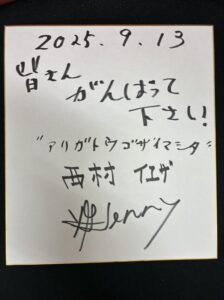 2025.9.13
皆さん
がんばって
下さい!
"アリガトウゴザイマシタ"
西村 イエザ
Jenny